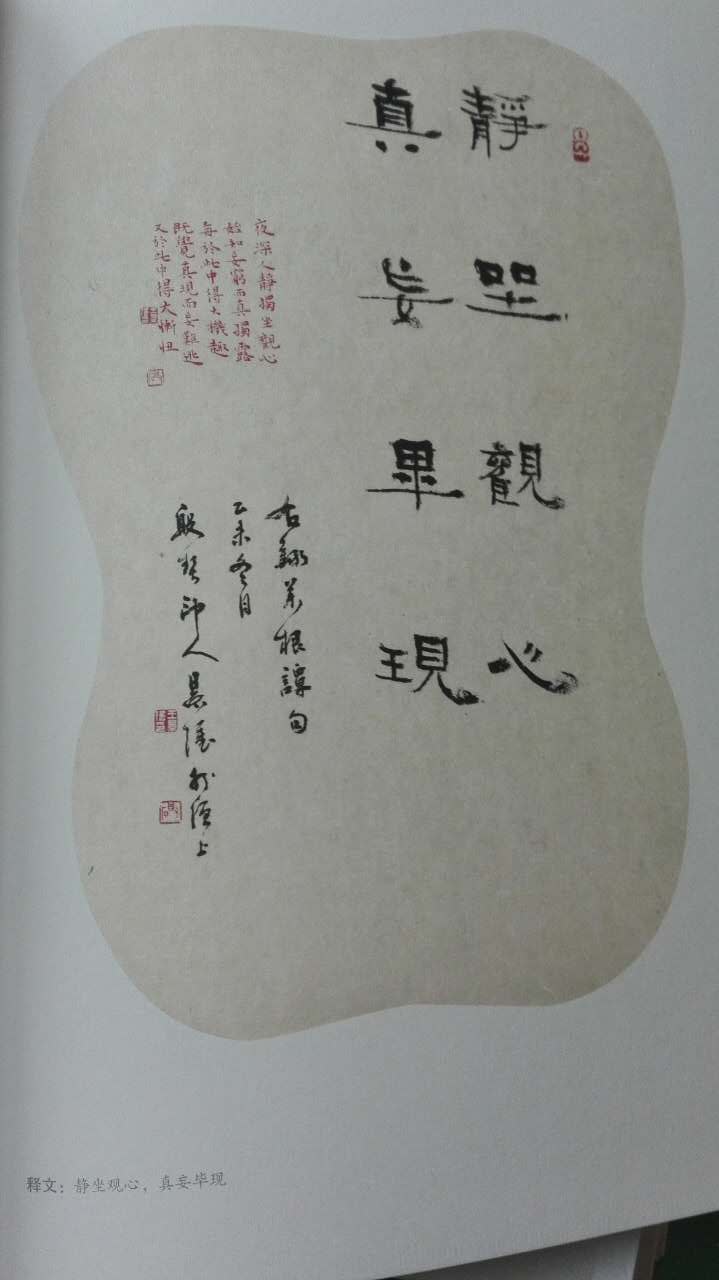 靜坐觀心
真妄畢現
夜深人靜獨坐觀心
始知妄窮而真獨露
每於此中得大機趣
既覺真現而妄難逃
又於此中得大慚忸
古錄菜根譚句
乙未冬月
釋文：静坐观心，真妄毕现